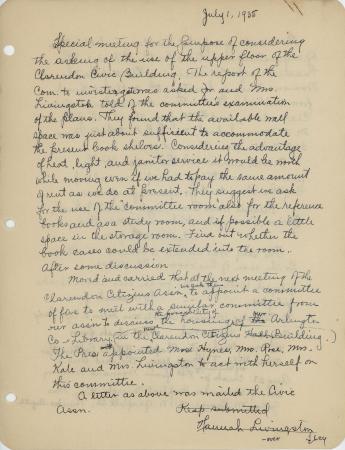 July 1, 1935
Special meeting for the purpose of considering
the asking of the use of the upper floor of the
Clarendon Civic Building. The report of the
Com. to investigate was asked for and Mrs.
Livingston told of the committee's examination
of the plans. They found that the available wall
space was just about sufficient to accommodate
the present book shelves. Considering the advantage
of heat, light, and janitor service it would be worth
while moving even if we had to pay the same amount
of rent as we do at present. They suggest we ask
for the use of the "committee room" also for the reference
books and as a study room, and if possible a little
space in the storage room. Find out whether the
book cases could be extended into the room.
After some discussion
Moved and carried that at the next meeting of the
Clarendon Citizens Assn. to appoint a committee
of five to meet with a similar committee from
our assn to discuss the possibility of the housing of our Arlington
Co. Library in the Clarendon Citizens Hall Building.
The Pres appointed Mrs Hynes, Mrs. Rose, Mrs.
Kale and Mrs Livingston to act with herself on
this committee.
A letter as above was mailed the Civic
Assn.
Resp. submitted
Hannah Livingston
-over- Secy